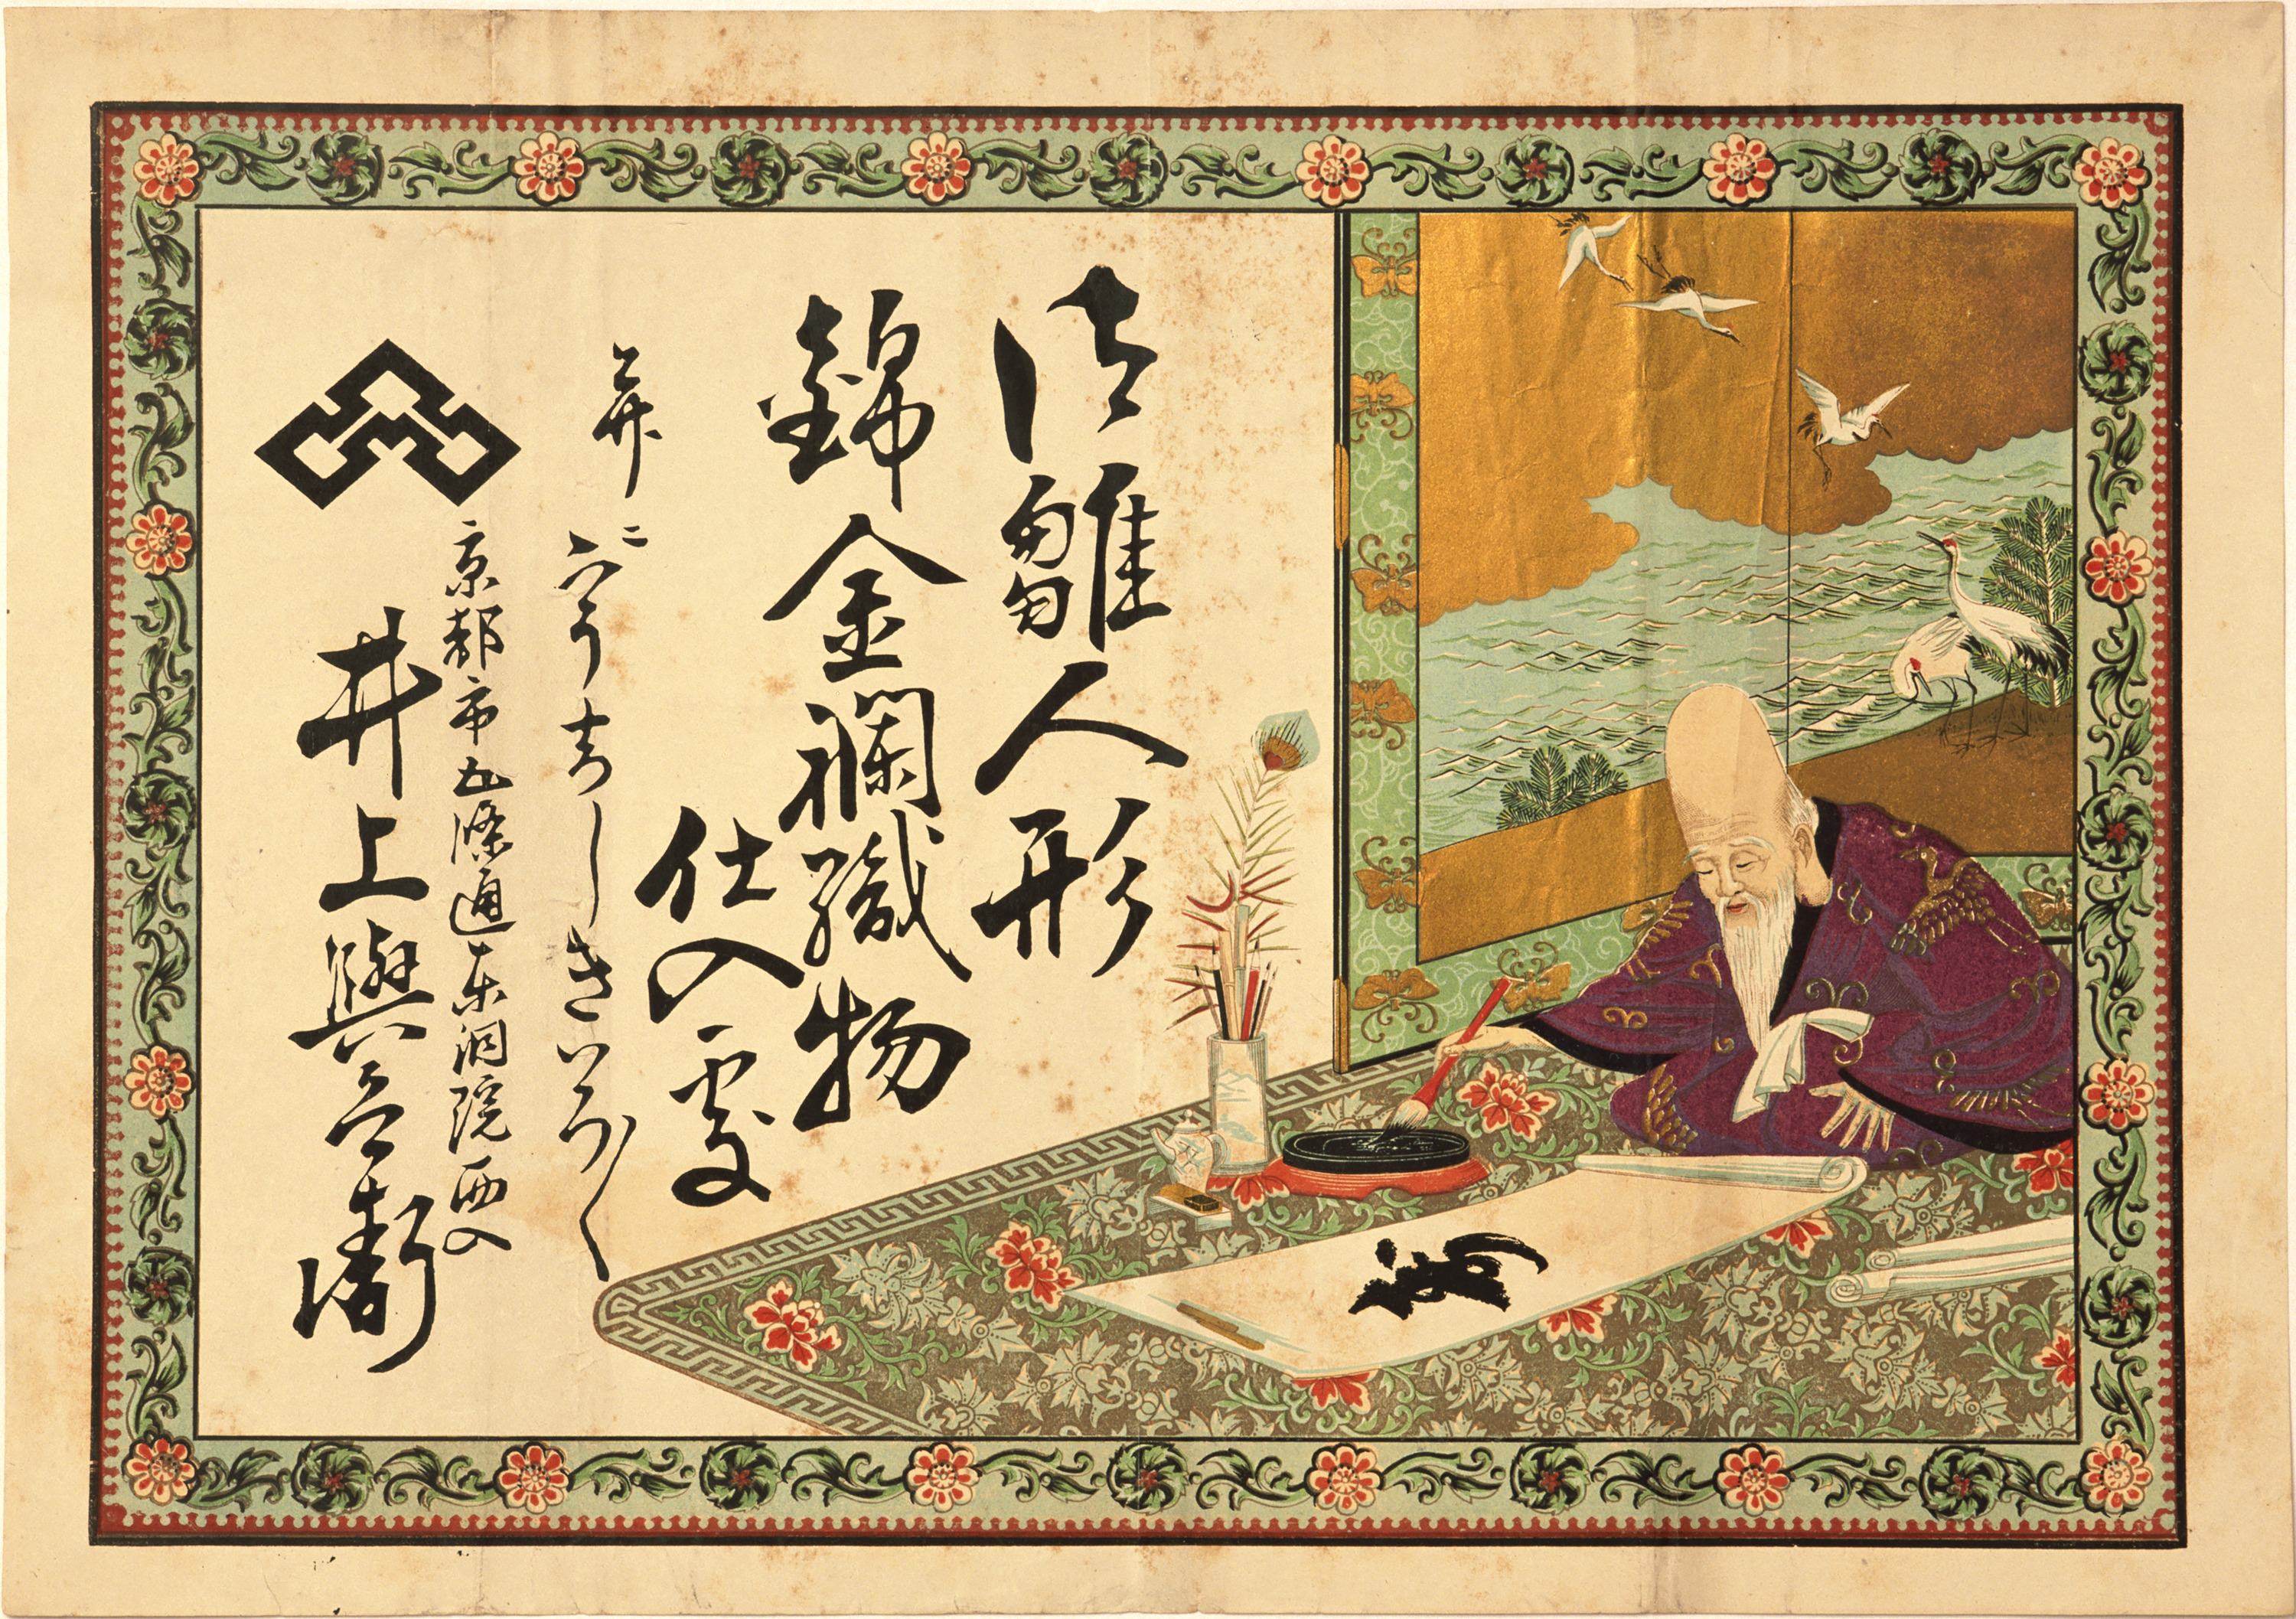 御雛人形
錦金襴織物
仕入處
并ニ
うちしきいろ〱
京都市五條通東洞院西入
井上與兵衛